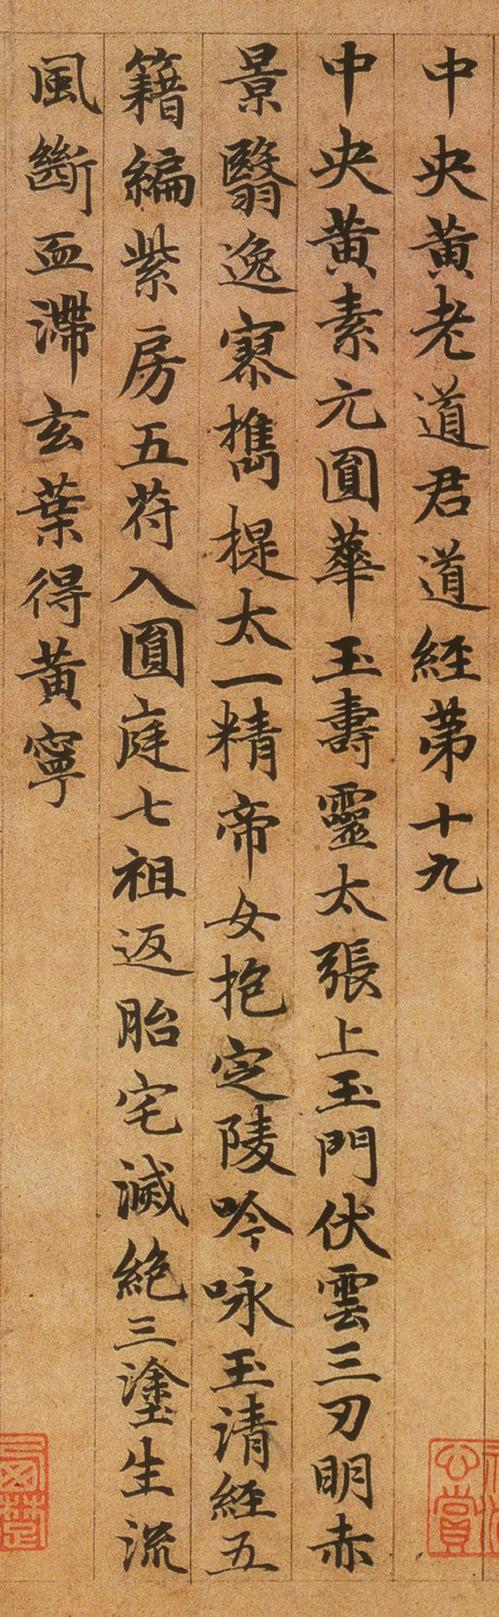 中央黄老道君道經苐十九
中央黄素元圓華玉壽靈太張上玉門伏雲三刃明赤
景翳逸寮攜提太一精帝女抱定陵吟咏玉清經五
籍編紫房五苻入圓庭七祖返胎宅滅絕三塗生流
風斷血滯玄葉得黄寧